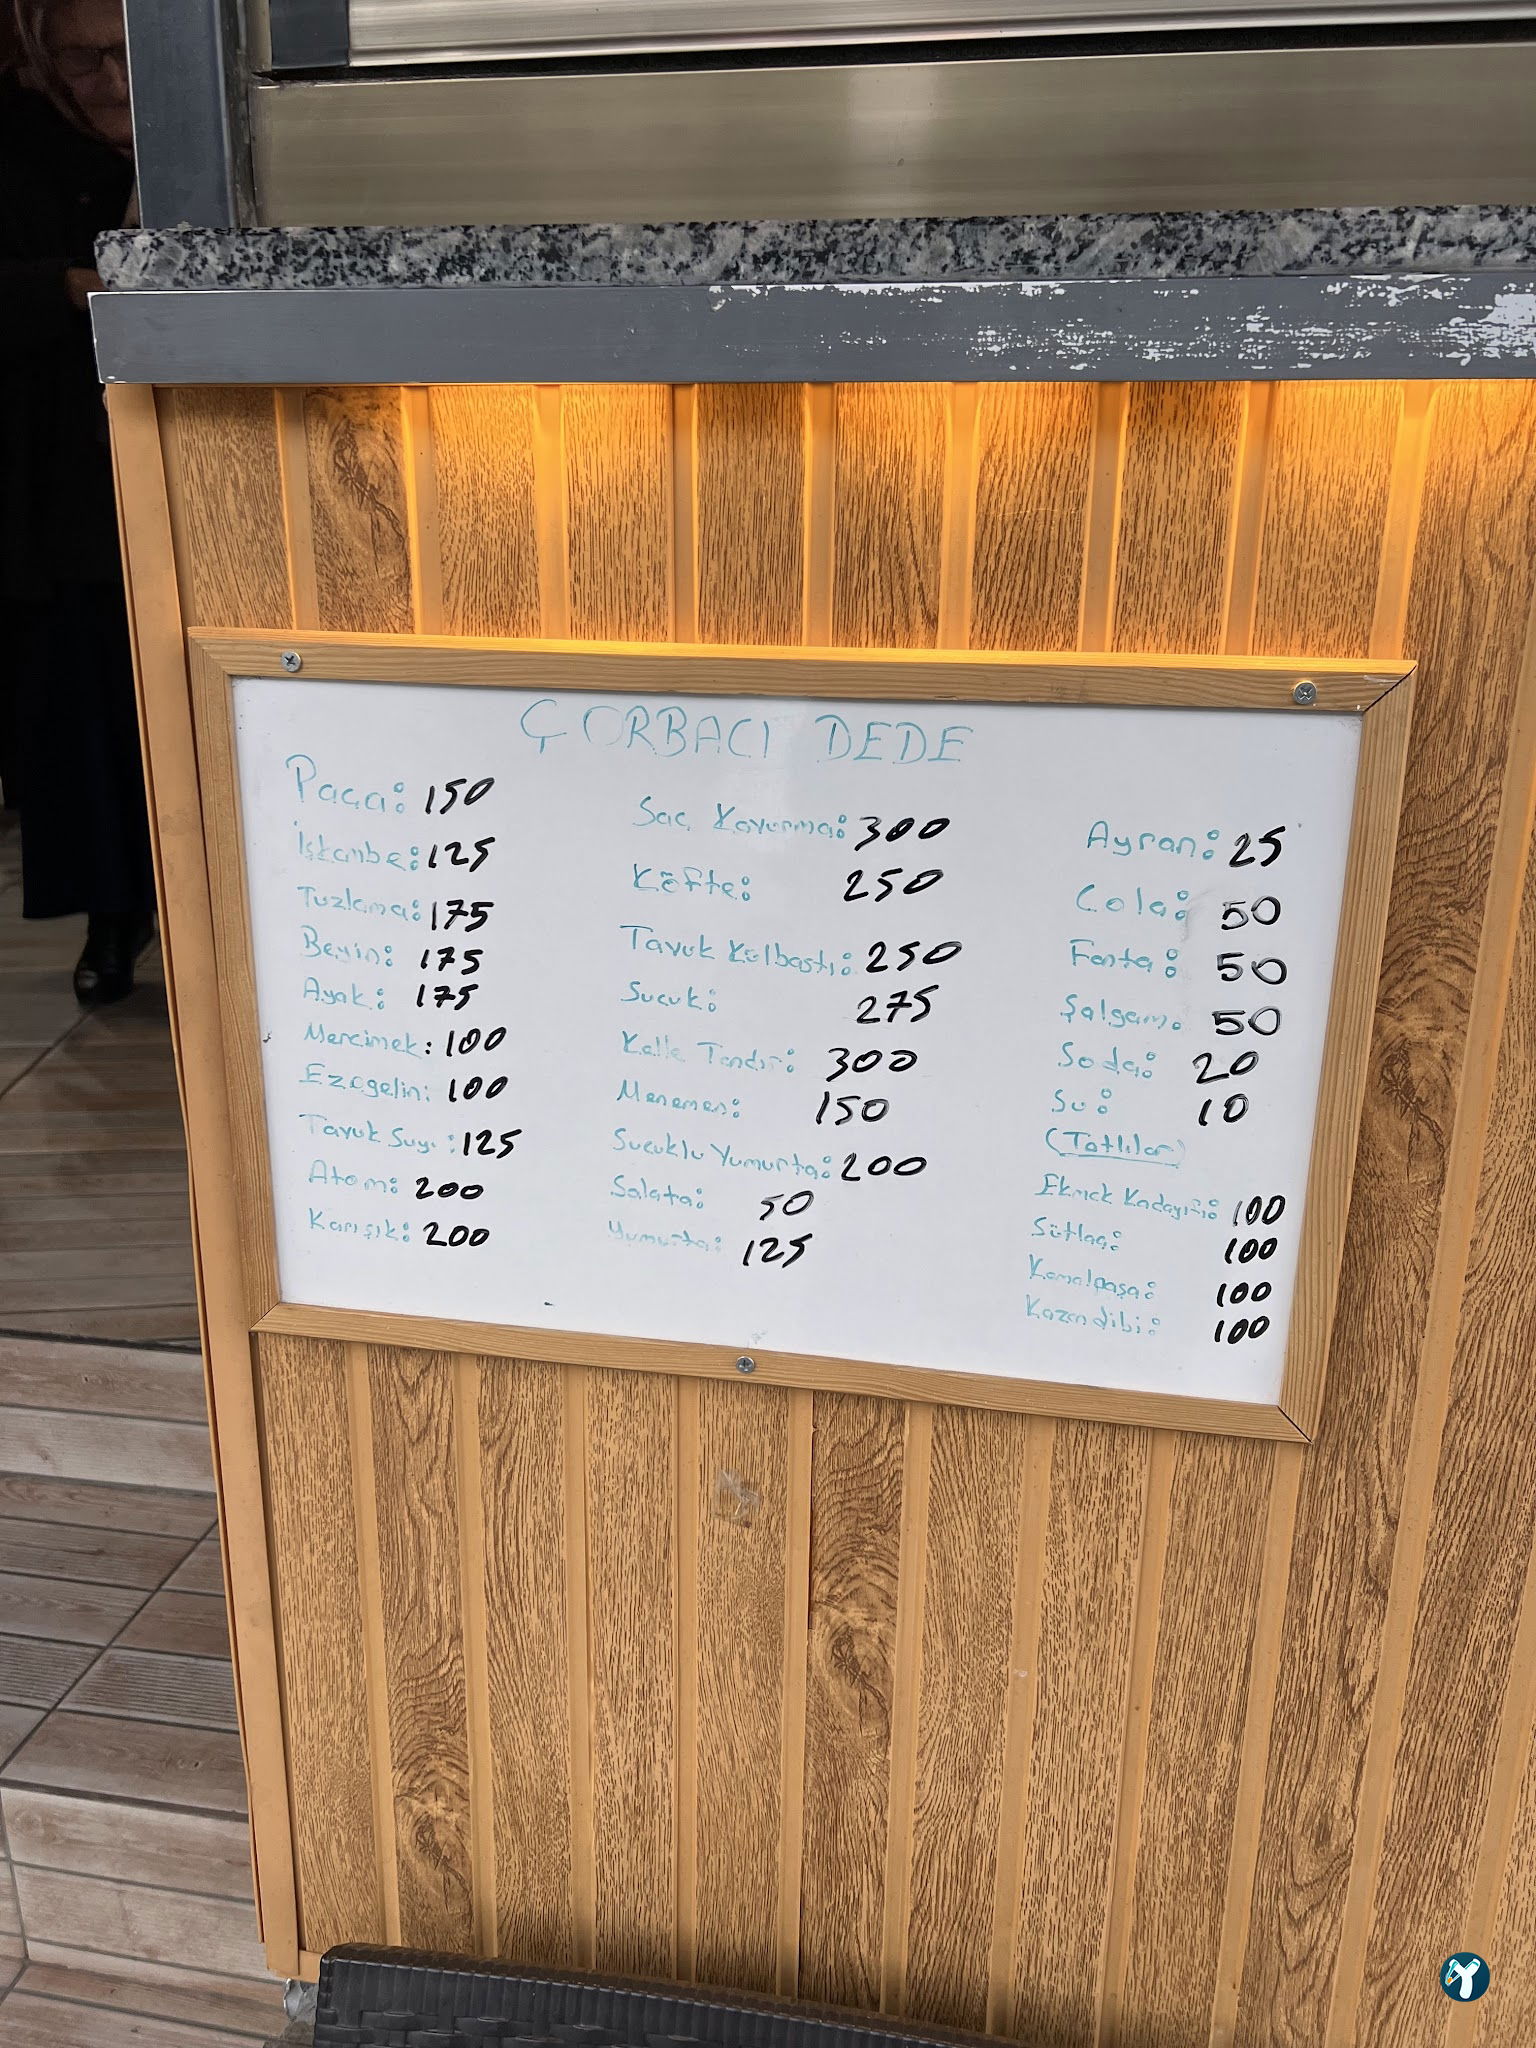 ÇORBACI DEDE
Paça: 150
İşkembe: 125
Tuzlama: 175
Beyin: 175
Ayak: 175
Mercimek: 100
Ezogelin: 100
Tavuk Suyu: 125
Atom: 200
Karışık: 200
Saç Kavurma: 300
Köfte: 250
Tavuk Külbastı: 250
Sucuk: 275
Kelle Tandır: 300
Menemen: 150
Sucuklu Yumurta: 200
Salata: 50
Yumurta: 125
Ayran: 25
Cola: 50
Fanta: 50
Şalgam: 50
Soda: 20
Su: 10
(Tatlılar)
Ekmek Kadayıfı: 100
Sütlaç: 100
Kemalpaşa: 100
Kazandibi: 100